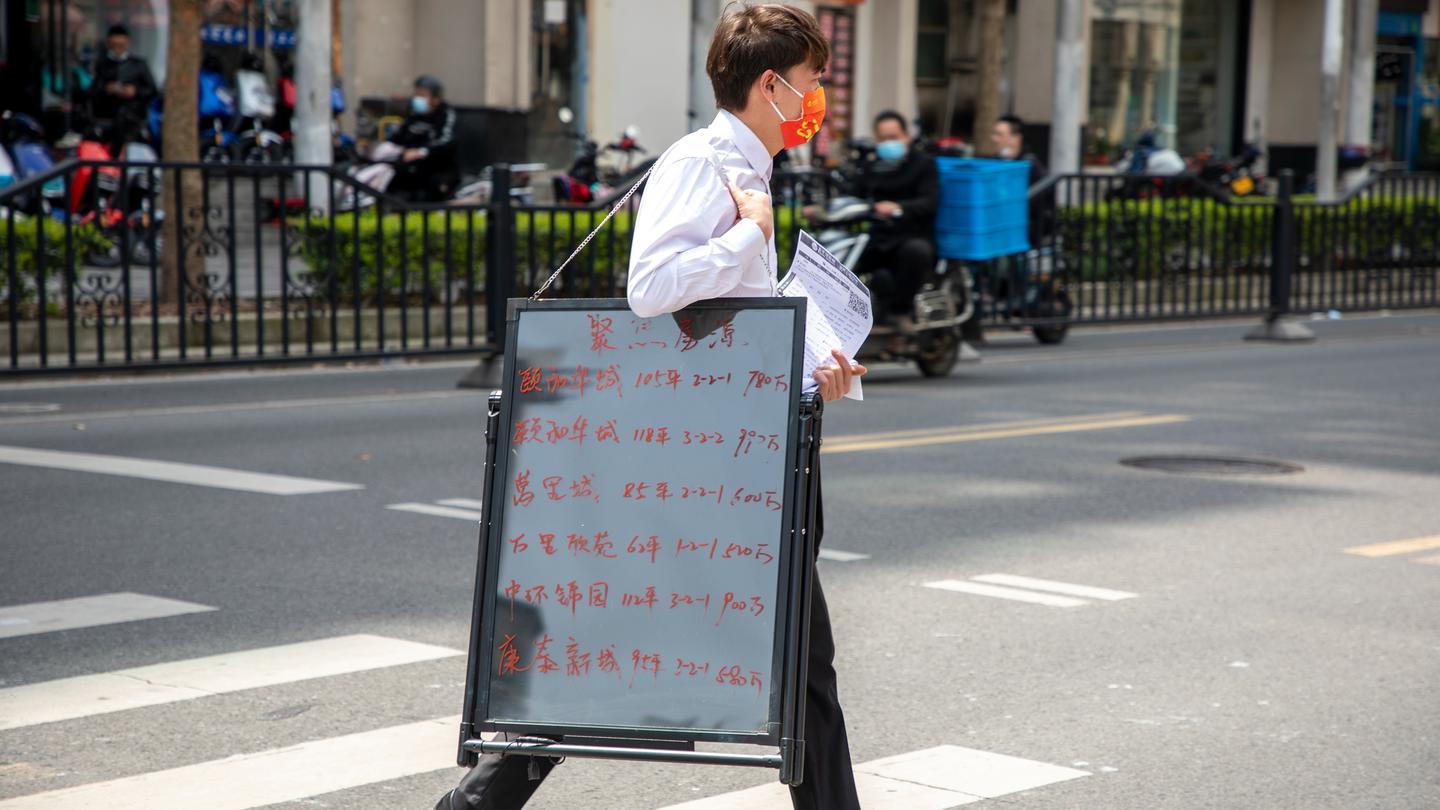 聚焦房源
颐和华城 105平 2-2-1 780万
颐和华城 118平 3-2-2 990万
萬里城 85平 2-2-1 600万
万里欣苑 62平 1-2-1 520万
中环锦园 112平 3-2-1 900万
康泰新城 95平 2-2-1 580万